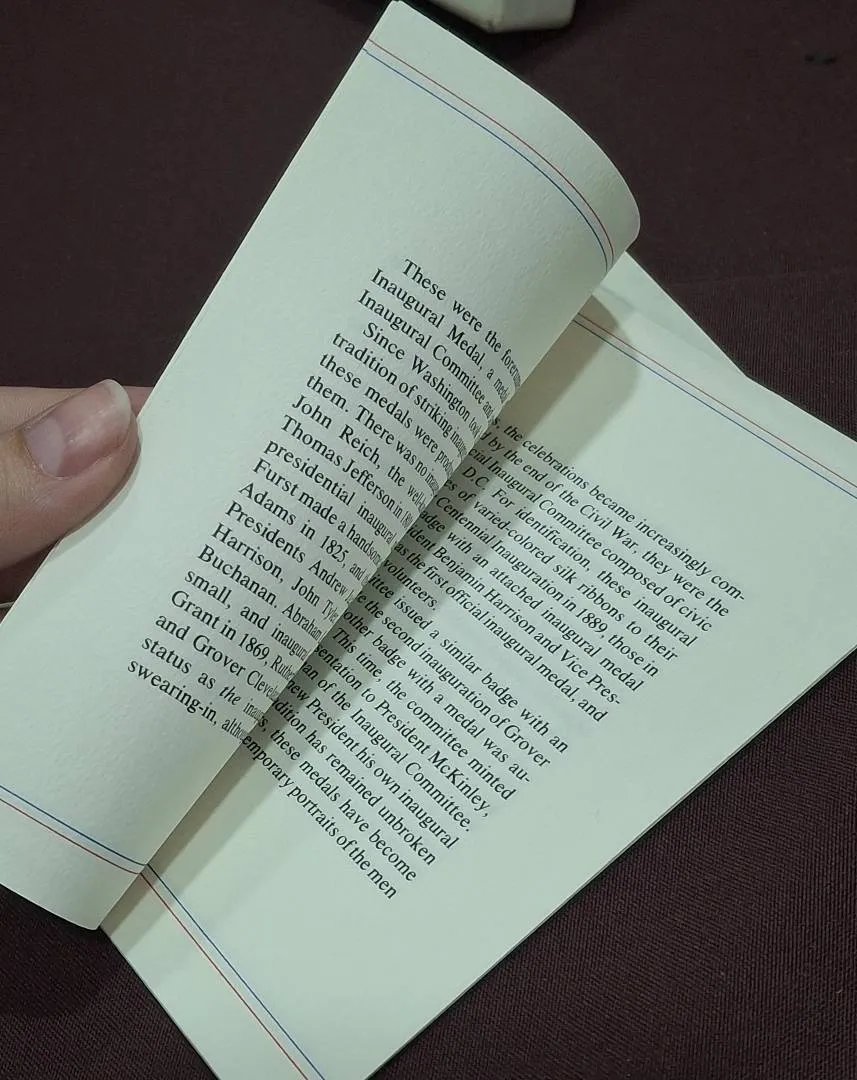 These were the
Inaugural Medal, a
Inaugural Committee
Since Washington
tradition of striking
these medals were
them. There was no
John Reich, the
Thomas Jefferson in
presidential inaugural
Furst made a handsome
Adams in 1825, and
Presidents Andrew
Harrison, John
Buchanan. Abraham
small, and
Grant in 1869,
and Grover
status as the
swearing-in,
the celebrations became increasingly com-
by the end of the Civil War, they were the
Inaugural Committee composed of civic
D.C. For identification, these inaugural
of varied-colored silk ribbons to their
Centennial Inauguration in 1889, those in
with an attached inaugural medal
Benjamin Harrison and Vice Pres-
as the first official inaugural medal, and
volunteers.
issued a similar badge with an
the second inauguration of Grover
other badge with a medal was au-
This time, the committee minted
to President McKinley,
of the Inaugural Committee.
new President his own inaugural
has remained unbroken
these medals have become
portraits of the men